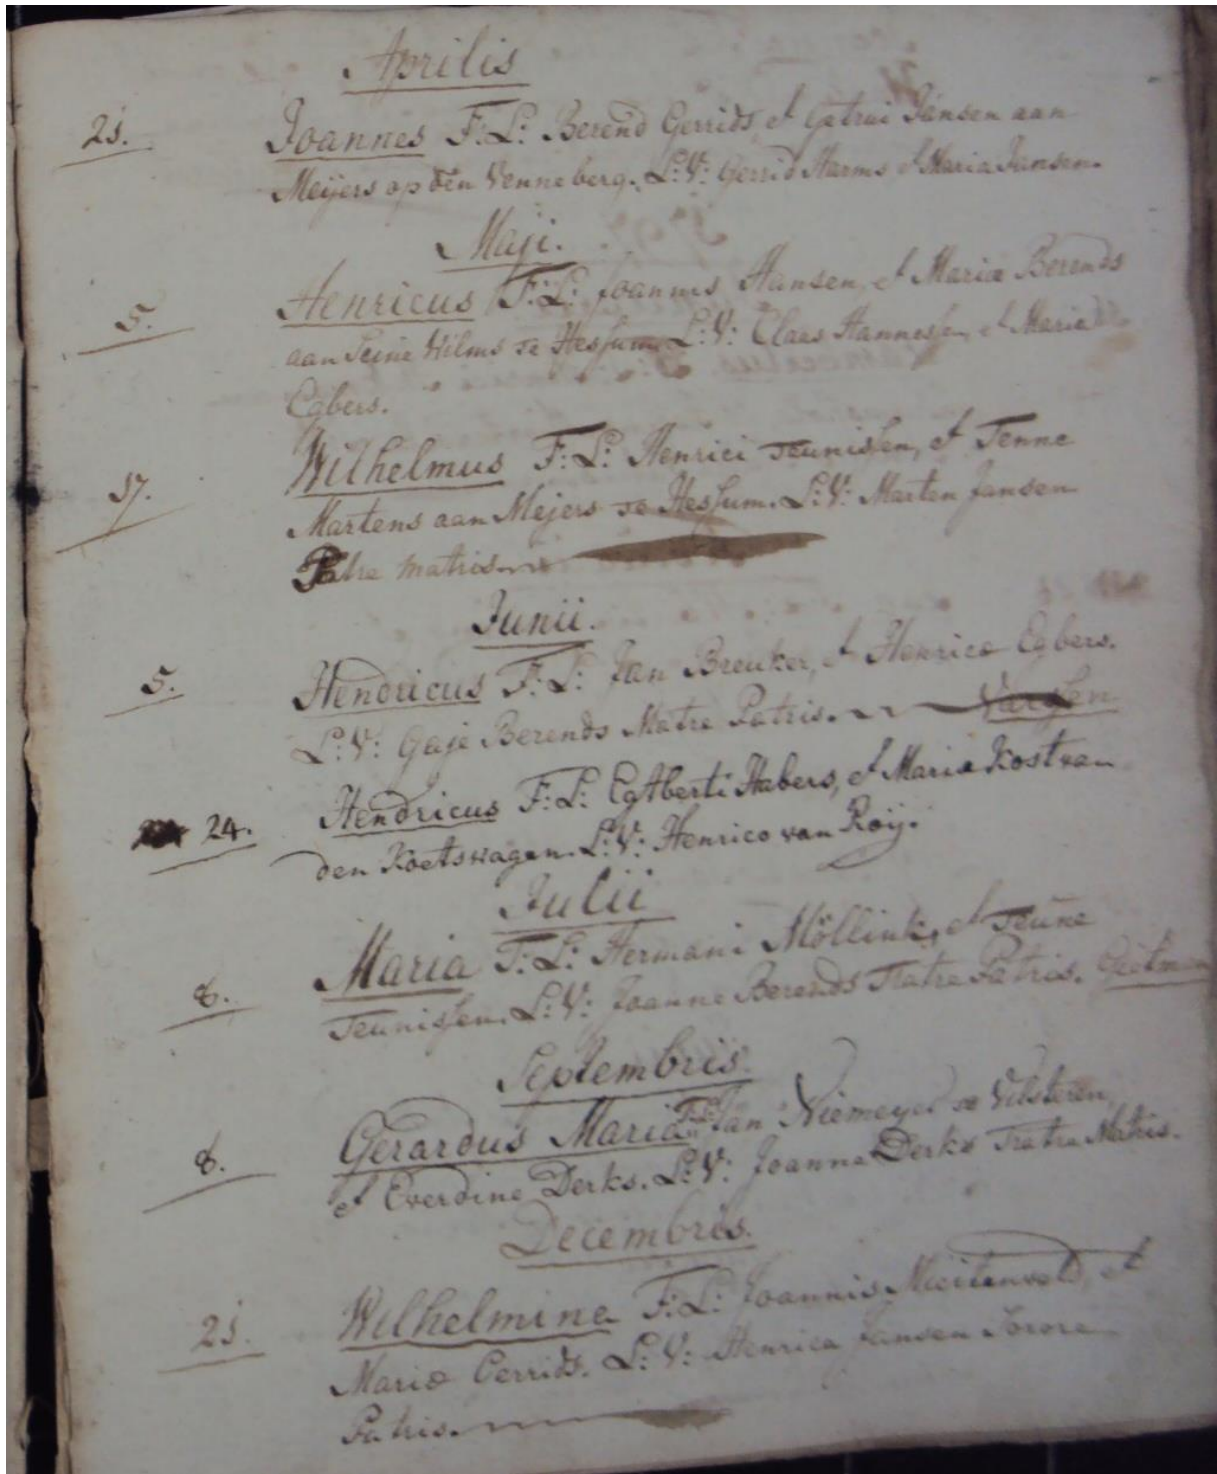 Aprilis
21. Joannes F: L: Berend Gerrids et Getrui Jansen aan
Meijers op den Venneberg. L: V: Gerrid Harms et Maria Jansen.
Maji.
5. Henricus F: L: Joannes Hansen, et Maria Berends
aan Seine Wilms te Hessum L: V: Claas Hannessen, et Maria
Egbers.
17. Wilhelmus F: L: Henrici Teunissen, et Tenne
Martens aan Mejers te Hessum. L: V: Marten Jansen
Patre matris.
Junii.
5. Hendricus F: L: Jan Breuker, et Henrica Egbers.
L: V: Gaje Berends Matre Patris. Varsen
24. Hendricus F: L: Egtberti Habers, et Maria Kost van
den Koetswagen. L: V: Henrico van Roij.
Julii
8. Maria F: L: Hermani Möllink, et Teune
Teunissen. L: V: Joanne Berends Fratre Patris.
Septembris.
8. Gerardus Maria F: L: Jan Niemeyer te Vilsteren,
et Everdine Derks. L: V: Joanne Derks Fratre Matris.
Decembris.
21. Wilhelmina F: L: Joannis et
Mariæ Gerrids. L: V: Henrica Jansen Sorore
Patris.